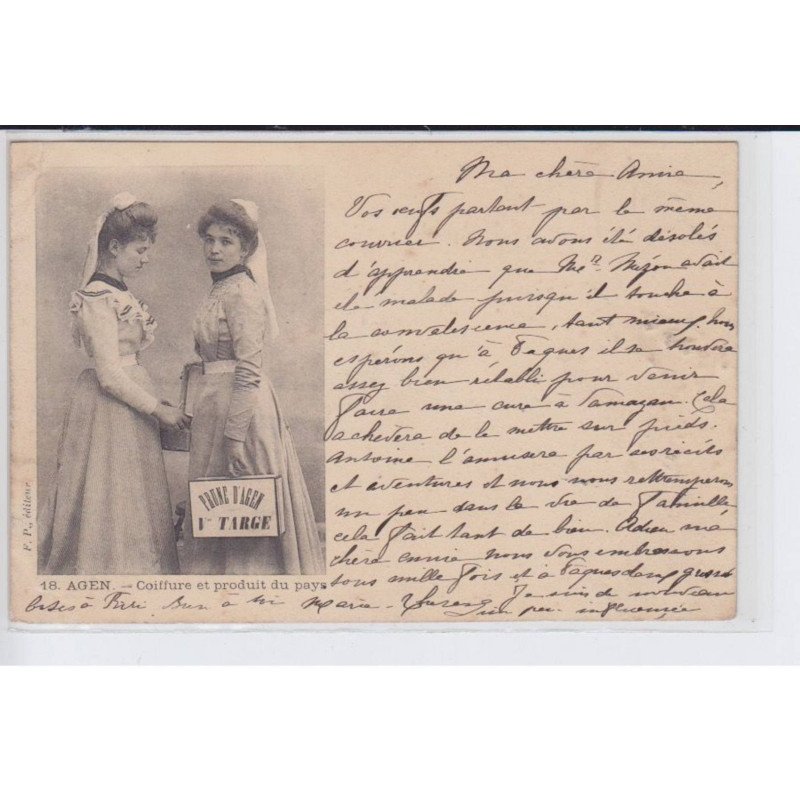 Ma chère Annie,
Vos œufs partant par le même
courrier. Nous avons été désolés
d'apprendre que Mr. avait
été malade puisqu'il touche à
la convalescence, tant mieux, nous
espérons qu'à Pâques il se trouvera
assez bien rétabli pour venir
faire une cure à Damazan. Cela
achèvera de le mettre sur pieds.
Antoine l'amusera par ses récits
et aventures et nous nous retremperons
un peu dans la vie de famille
cela fait tant de bien. Adieu ma
chère annie nous vous embrassons
tous mille fois et à Pâques
Je suis de nouveau
un peu influencée
Marie
PRUNE D'AGEN
Vve TARGE
F. P., éditeur.
18. AGEN. — Coiffure et produit du pays